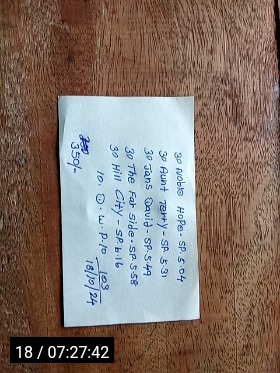 30 Noble Hope - SP. 5.04
30 Aunt Terry - SP. 5.31
30 Jans David - SP. 5.49
30 The Far Side - SP. 5.58
30 Hill City - SP. 6.16
10. D. W. P. 10
350/-
103
18/10/24
18 / 07:27:42